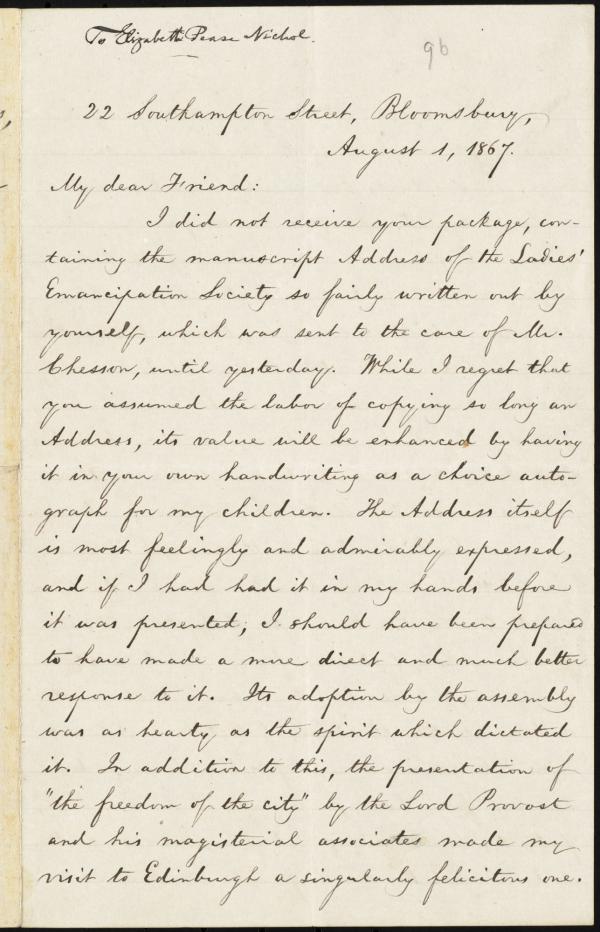 To Elizabeth Pease Nichol.
96
22 Southampton Street, Bloomsbury,
August 1, 1867.
My dear Friend:
I did not receive your package, con-
taining the manuscript Address of the Ladies'
Emancipation Society so fairly written out by
yourself, which was sent to the care of Mr.
Chesson, until yesterday. While I regret that
you assumed the labor of copying so long an
Address, its value will be enhanced by having
it in your own handwriting as a choice auto-
graph for my children. The Address itself
is most feelingly and admirably expressed,
and if I had had it in my hands before
it was presented, I should have been prepared
to have made a more direct and much better
response to it. Its adoption by the assembly
was as hearty as the spirit which dictated
it. In addition to this, the presentation of
"the freedom of the city" by the Lord Provost
and his magisterial associates made my
visit to Edinburgh a singularly felicitous one.